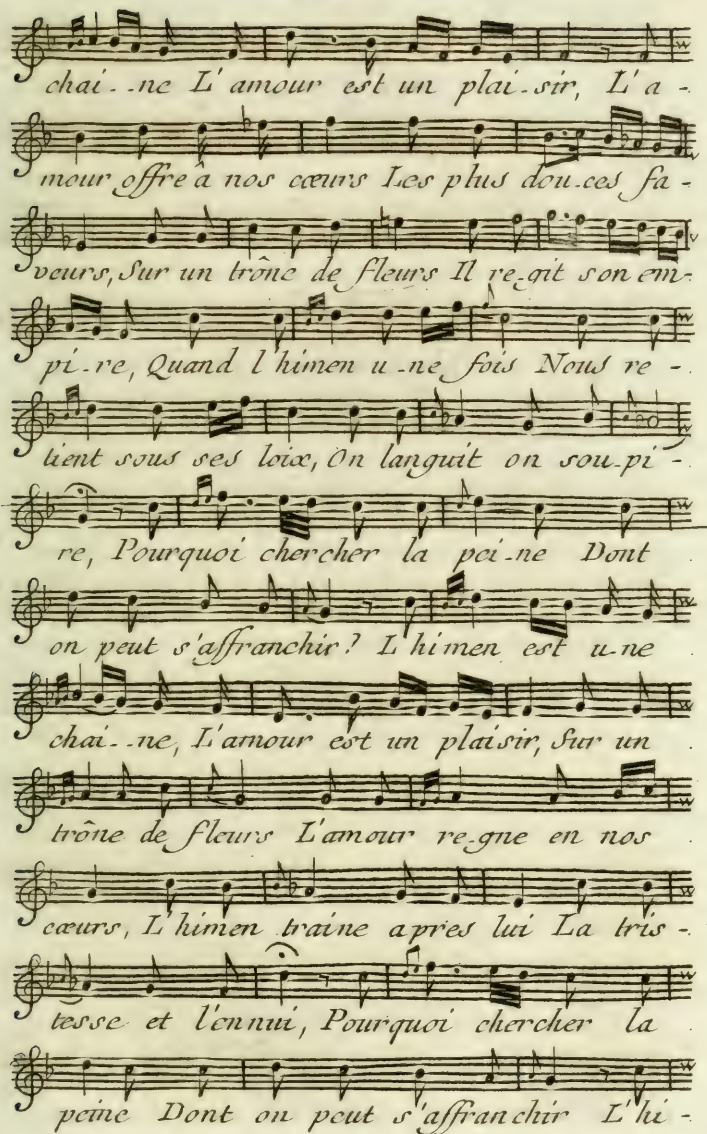 chai--ne L'amour est un plai-sir, L'a-
mour offre à nos cœurs Les plus dou-ces fa-
veurs, Sur un trône de fleurs Il re-git son em-
pi-re, Quand l'himen u-ne fois Nous re-
tient sous ses loix, On languit on sou-pi-
re, Pourquoi chercher la pei-ne Dont
on peut s'affranchir? L'himen est u-ne
chai--ne, L'amour est un plaisir, Sur un
trône de fleurs L'amour re-gne en nos
cœurs, L'himen traine apres lui La tris-
tesse et l'ennui, Pourquoi chercher la
peine Dont on peut s'affranchir L'hi-